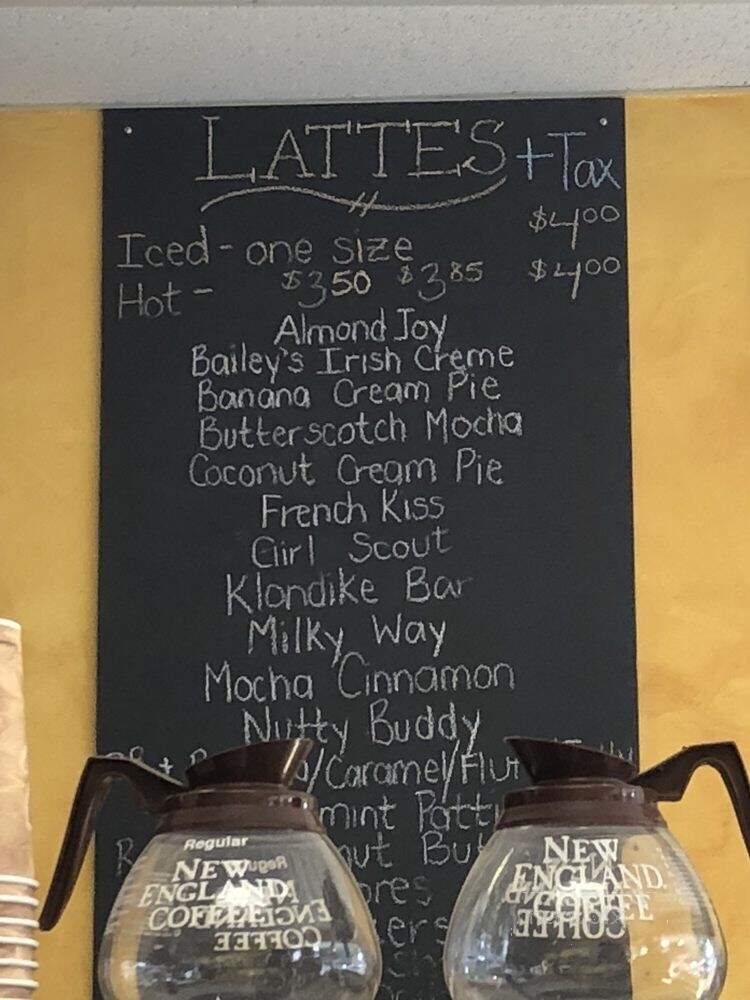 LATTES + Tax
$4.00
Iced - one size
Hot - $3.50 $3.85 $4.00
Almond Joy
Bailey's Irish Creme
Banana Cream Pie
Butterscotch Mocha
Coconut Cream Pie
French Kiss
Girl Scout
Klondike Bar
Milky Way
Mocha Cinnamon
Nutty Buddy
/Caramel/Flu
mint Patt
Regular
NEW
ENGLAND
COFFEE
NEW
ENGLAND
COFFEE